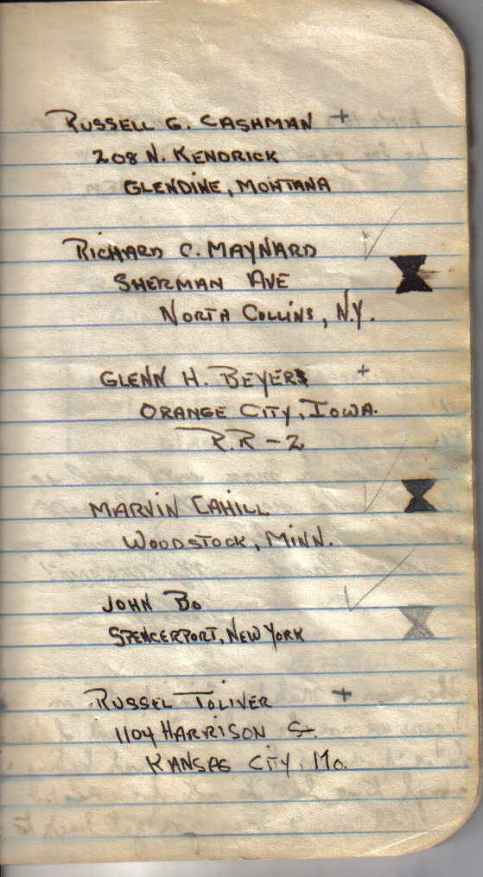 RUSSELL G. CASHMAN +
208 N. KENDRICK
GLENDINE, MONTANA
RICHARD C. MAYNARD
SHERMAN AVE
NORTH COLLINS, N.Y.
GLENN H. BEYER +
ORANGE CITY, IOWA.
R.R-2
MARVIN CAHILL
WOODSTOCK, MINN.
JOHN BO
SPENCERPORT, NEW YORK
RUSSEL TOLIVER +
1104 HARRISON
KANSAS CITY, MO.